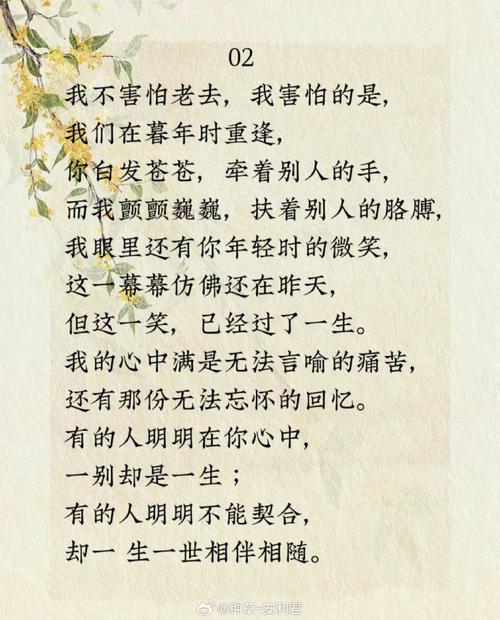 02
我不害怕老去，我害怕的是，
我们在暮年时重逢，
你白发苍苍，牵着别人的手，
而我颤颤巍巍，扶着别人的胳膊，
我眼里还有你年轻时的微笑，
这一幕幕仿佛还在昨天，
但这一笑，已经过了一生。
我的心中满是无法言喻的痛苦，
还有那份无法忘怀的回忆。
有的人明明在你心中，
一别却是一生；
有的人明明不能契合，
却一 生一世相伴相随。
@种草-安利君